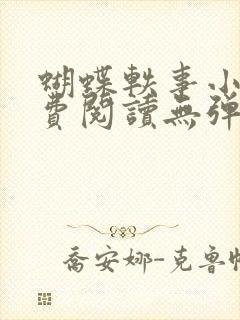 蝴蝶軼事小
費閱讀無彈
喬安娜-克魯